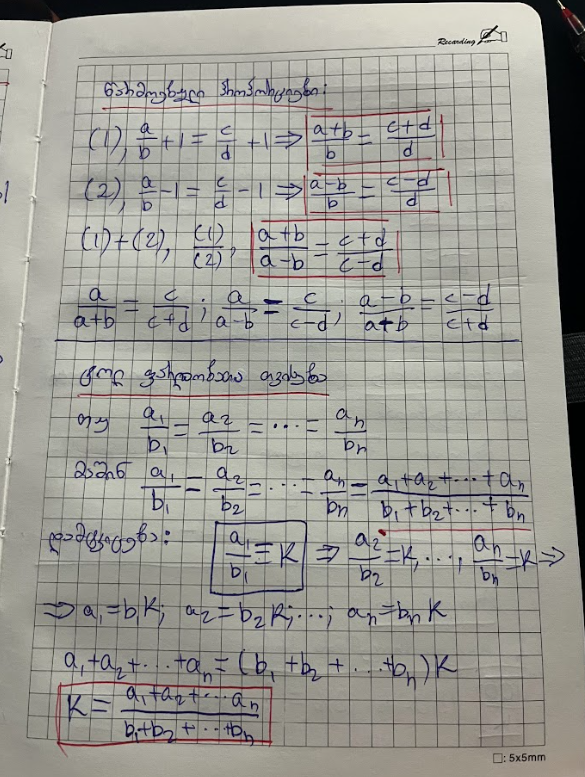 Recording
წარმოებული პროპორციები:
(1), a/b + 1 = c/d + 1 ⇒ (a+b)/b = (c+d)/d
(2), a/b − 1 = c/d − 1 ⇒ (a−b)/b = (c−d)/d
(1)+(2), (1)/(2), (a+b)/(a−b) = (c+d)/(c−d)
a/(a+b) = c/(c+d); a/(a−b) = c/(c−d); (a−b)/(a+b) = (c−d)/(c+d)
ტოლ ფარდობათა თვისება
თუ a₁/b₁ = a₂/b₂ = ⋯ = aₙ/bₙ
მაშინ a₁/b₁ = a₂/b₂ = ⋯ = aₙ/bₙ = (a₁+a₂+⋯+aₙ)/(b₁+b₂+⋯+bₙ)
დამტკიცება: a₁/b₁ = K ⇒ a₂/b₂ = K, ⋯, aₙ/bₙ = K ⇒
⇒ a₁=b₁K; a₂=b₂K; ⋯; aₙ=bₙK
a₁+a₂+⋯+aₙ = (b₁+b₂+⋯+bₙ)K
K = (a₁+a₂+⋯aₙ)/(b₁+b₂+⋯+bₙ)
□: 5x5mm